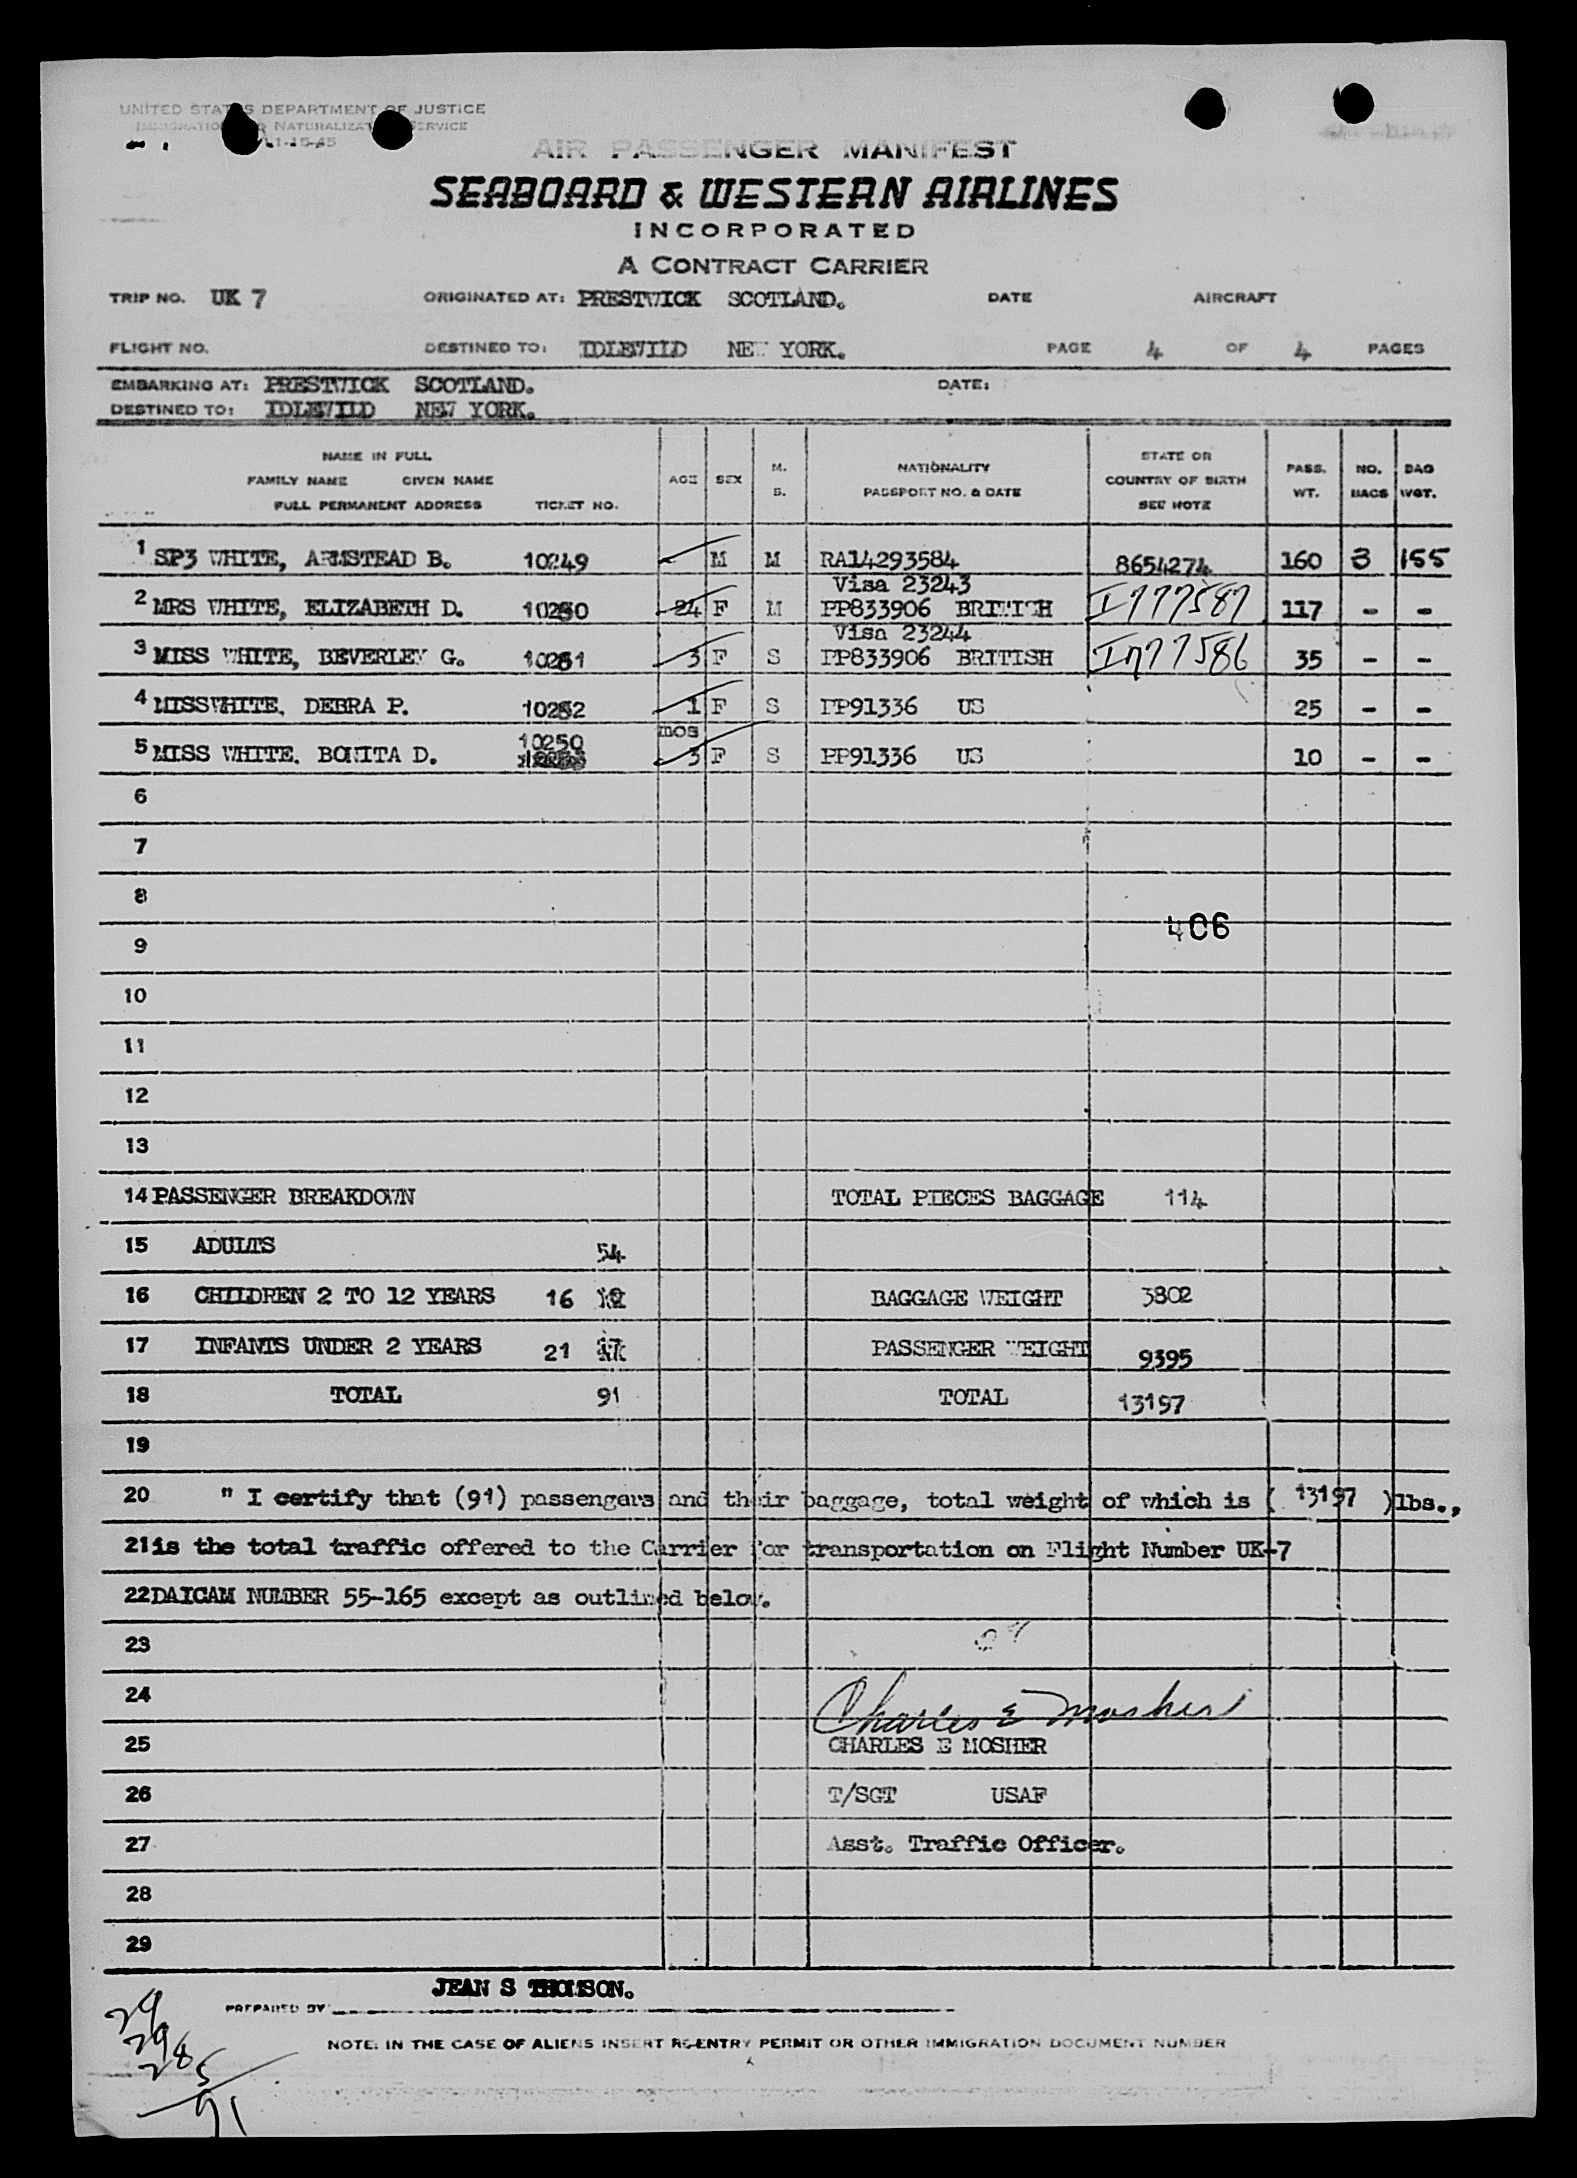 UNITED STATES DEPARTMENT OF JUSTICE
IMMIGRATION AND NATURALIZATION SERVICE
AIR PASSENGER MANIFEST
SEABOARD & WESTERN AIRLINES
INCORPORATED
A CONTRACT CARRIER
TRIP NO. UK 7 ORIGINATED AT: PRESTWICK SCOTLAND. DATE AIRCRAFT
FLIGHT NO. DESTINED TO: IDLEWILD NEW YORK. PAGE 4 OF 4 PAGES
EMBARKING AT: PRESTWICK SCOTLAND. DATE:
DESTINED TO: IDLEWILD NEW YORK.
NAME IN FULL
FAMILY NAME GIVEN NAME
FULL PERMANENT ADDRESS TICKET NO. AGE SEX M. S. NATIONALITY PASSPORT NO. & DATE STATE OR COUNTRY OF BIRTH SEE NOTE PASS. WT. NO. BAGS BAG WGT.
1 SP3 WHITE, ARMSTEAD B. 10249 M M RA14293584 8654274 160 3 155
Visa 23243
2 MRS WHITE, ELIZABETH D. 10250 24 F M PP833906 BRITISH I777587 117 - -
Visa 23244
3 MISS WHITE, BEVERLEY G. 10251 3 F S PP833906 BRITISH I777586 35 - -
4 MISS WHITE, DEBRA P. 10252 1 F S PP91336 US 25 - -
mos
10250
5 MISS WHITE. BONITA D. 3 F S PP91336 US 10 - -
6
7
8
406
9
10
11
12
13
14 PASSENGER BREAKDOWN TOTAL PIECES BAGGAGE 114
15 ADULTS 54
16 CHILDREN 2 TO 12 YEARS 16 BAGGAGE WEIGHT 3802
17 INFANTS UNDER 2 YEARS 21 PASSENGER WEIGHT 9395
18 TOTAL 91 TOTAL 13197
19
20 " I certify that (91) passengers and their baggage, total weight of which is ( 13197 )lbs.,
21 is the total traffic offered to the Carrier for transportation on Flight Number UK-7
22 DAICAM NUMBER 55-165 except as outlined below.
23
24 Charles E Mosher
25 CHARLES E MOSHER
26 T/SGT USAF
27 Asst. Traffic Officer.
28
29
JEAN S THOMSON.
PREPARED BY
NOTE: IN THE CASE OF ALIENS INSERT RE-ENTRY PERMIT OR OTHER IMMIGRATION DOCUMENT NUMBER
29
29
28
5
91